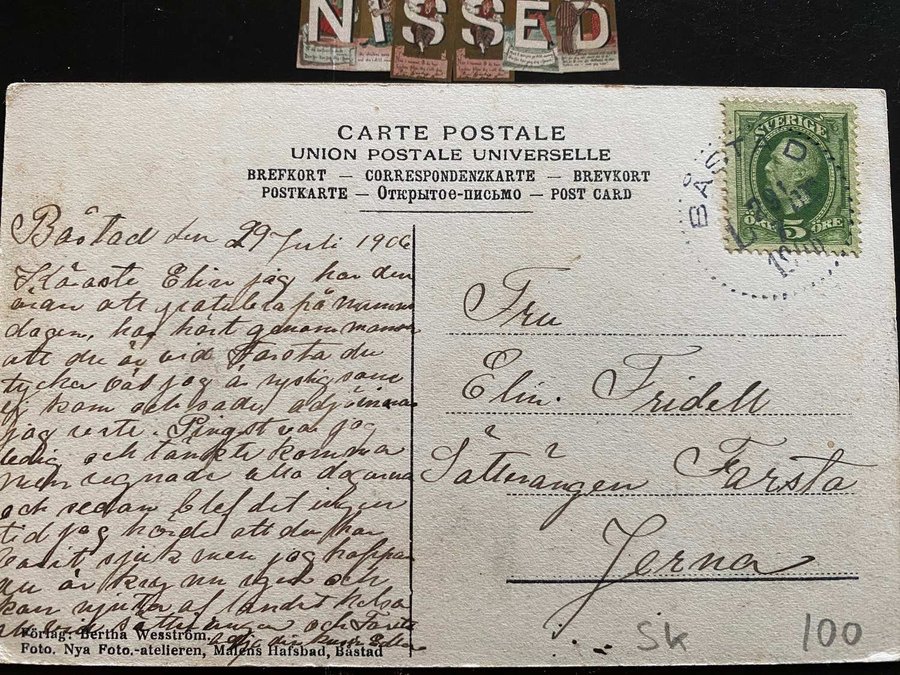 NISSED
CARTE POSTALE
UNION POSTALE UNIVERSELLE
BREFKORT — CORRESPONDENZKARTE — BREVKORT
POSTKARTE — Открытое-письмо — POST CARD
SVERIGE
5
ÖRE
BÅSTAD
Båstad den 29 Juli 1906
Käraste Elin jag har den
äran att gratulera på namns
dagen, har hört genom mamma
att du är vid Farsta du
tycker väl jag är ryslig som
ej kom och sade adjö innan
jag reste. Pingst var jag
ledig och tänkte komma
men regnade alla dagarna
och sedan blef det ingen
tid jag hörde att du har
varit sjuk men jag hoppas
du är kry nu igen och
kan njuta af landet hälsa
vid Sätterängen och Farsta
din
Fru
Elin Fridell
Sätterängen Farsta
Jerna
Förlag: Bertha Wesström.
Foto. Nya Foto.-atelieren, Malens Hafsbad, Båstad
Sk 100